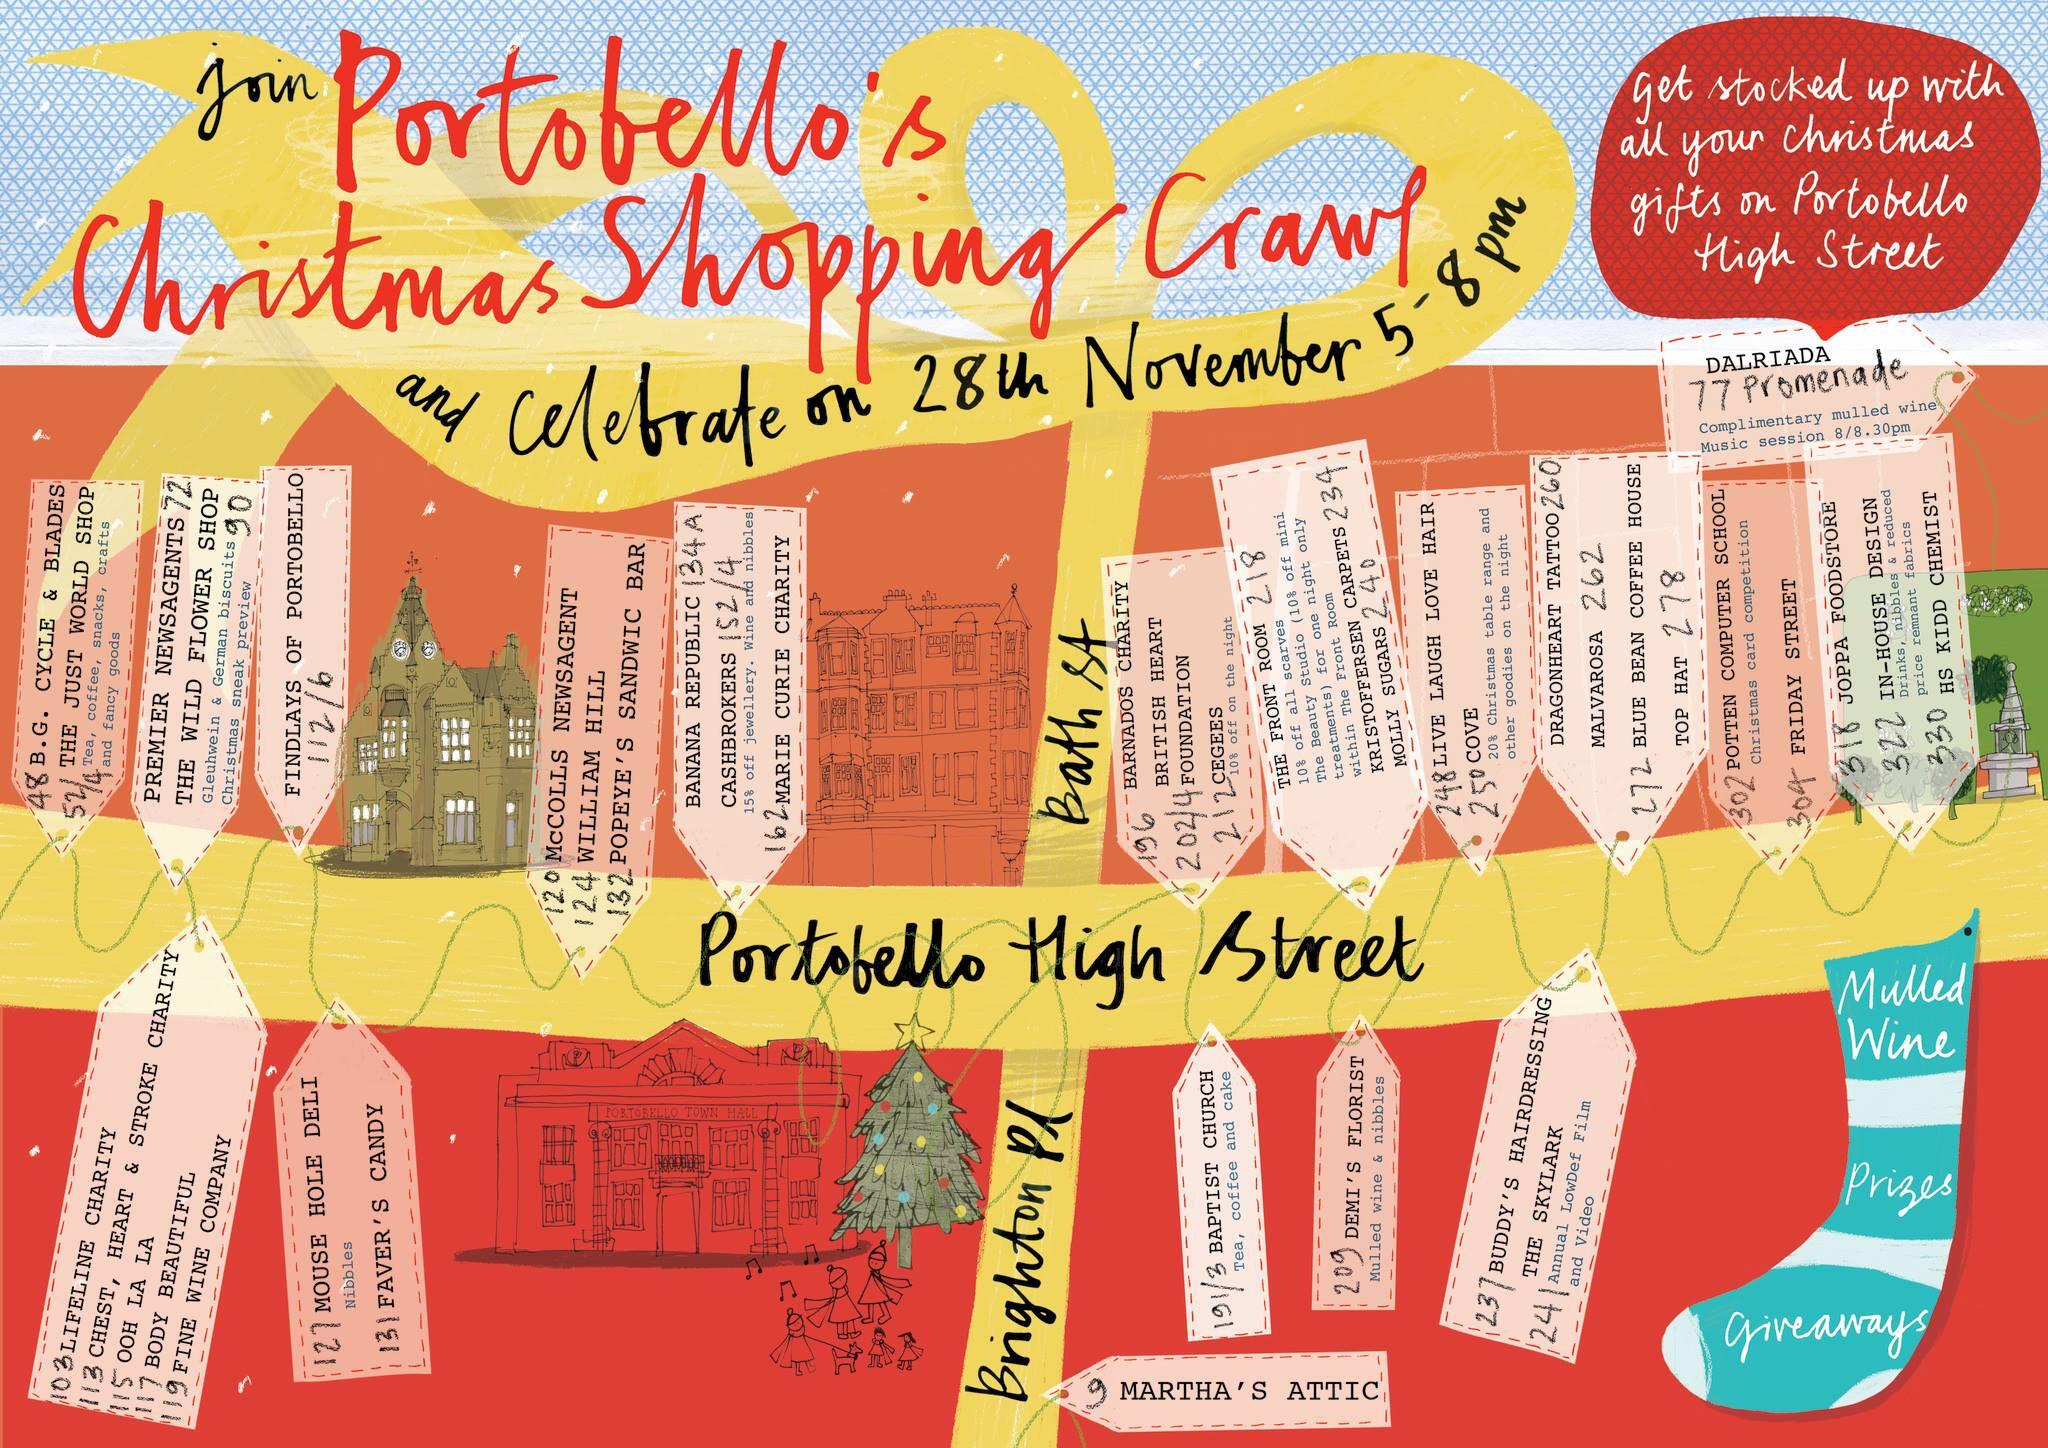 join Portobello's
Christmas Shopping Crawl
and celebrate on 28th November 5-8pm
Get stocked up with
all your Christmas
gifts on Portobello
High Street
DALRIADA
77 Promenade
Complimentary mulled wine
Music session 8/8.30pm
48 B.G. CYCLE & BLADES
52/4 THE JUST WORLD SHOP
Tea, coffee, snacks, crafts
and fancy goods
PREMIER NEWSAGENTS 72
THE WILD FLOWER SHOP 90
Gleuhwein & German biscuits
Christmas sneak preview
FINDLAYS OF PORTOBELLO
112/6
120 McCOLLS NEWSAGENT
124 WILLIAM HILL
132 POPEYE'S SANDWIC BAR
BANANA REPUBLIC 134A
CASHBROKERS 152/4
15% off jewellery. Wine and nibbles
162 MARIE CURIE CHARITY
Bath St
196 BARNADOS CHARITY
BRITISH HEART
202/4 FOUNDATION
212 CEGEES
10% off on the night
THE FRONT ROOM 218
10% off all scarves
The Beauty Studio (10% off mini
treatments) for one night only
within The Front Room
KRISTOFFERSEN CARPETS 234
MOLLY SUGARS 240
248 LIVE LAUGH LOVE HAIR
250 COVE
20% Christmas table range and
other goodies on the night
DRAGONHEART TATTOO 260
MALVAROSA 262
272 BLUE BEAN COFFEE HOUSE
TOP HAT 278
302 POTTEN COMPUTER SCHOOL
Christmas card competition
304 FRIDAY STREET
318 JOPPA FOODSTORE
322 IN-HOUSE DESIGN
Drinks, nibbles & reduced
price remnant fabrics
330 HS KIDD CHEMIST
Portobello High Street
103 LIFELINE CHARITY
113 CHEST, HEART & STROKE CHARITY
115 OOH LA LA
117 BODY BEAUTIFUL
119 FINE WINE COMPANY
127 MOUSE HOLE DELI
Nibbles
131 FAVER'S CANDY
PORTOBELLO TOWN HALL
Brighton Pl
191/3 BAPTIST CHURCH
Tea, coffee and cake
209 DEMI'S FLORIST
Mulled wine & nibbles
237 BUDDY'S HAIRDRESSING
THE SKYLARK
241 Annual LowDef Film
and Video
9 MARTHA'S ATTIC
Mulled
Wine
Prizes
Giveaways